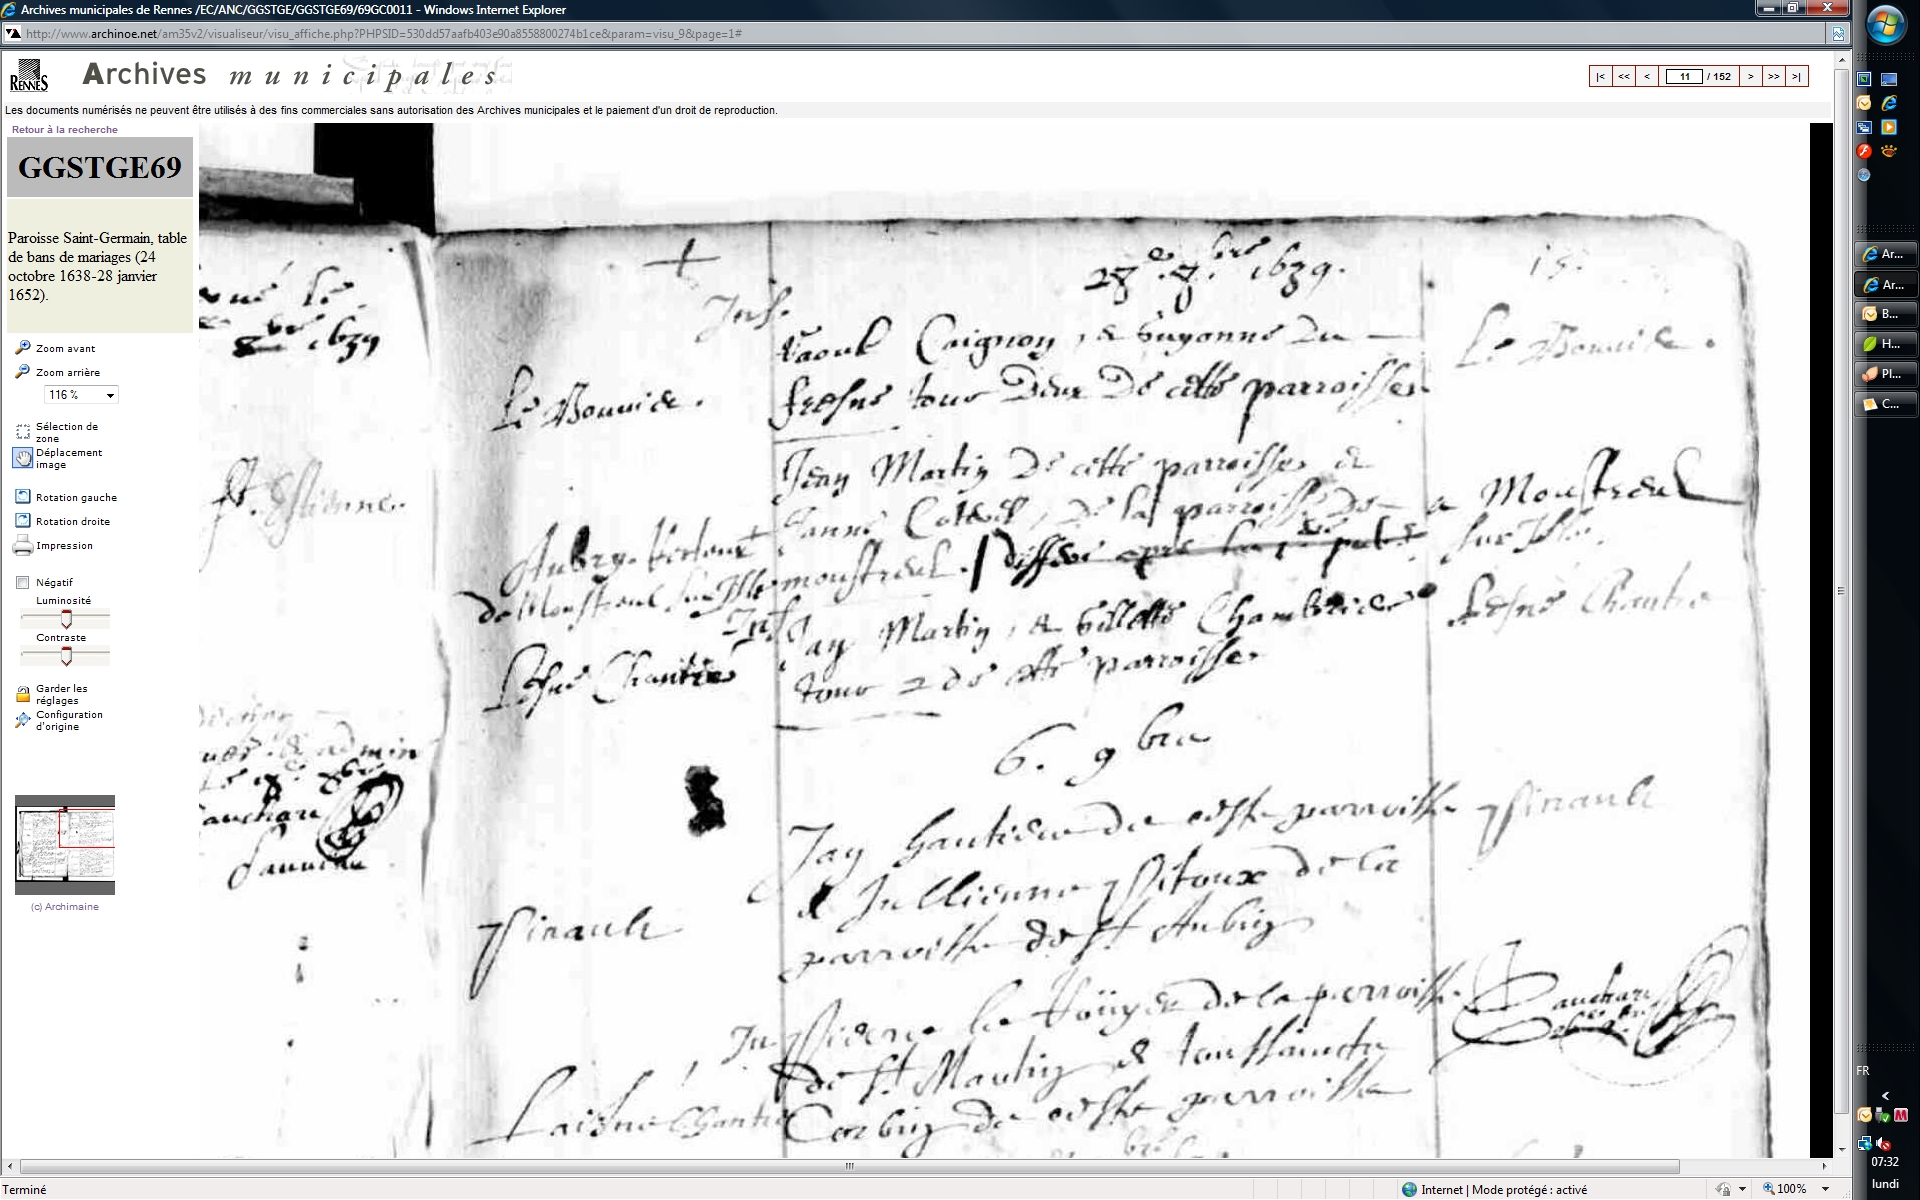 Archives municipales de Rennes /EC/ANC/GGSTGE/GGSTGE69/69GC0011 - Windows Internet Explorer
http://www.archinoe.net/am35v2/visualiseur/visu_affiche.php?PHPSID=530dd57aafb403e90a8558800274b1ce&param=visu_9&page=1#
RENNES
Archives municipales
|< << < 11 / 152 > >> >|
Les documents numérisés ne peuvent être utilisés à des fins commerciales sans autorisation des Archives municipales et le paiement d'un droit de reproduction.
Retour à la recherche
GGSTGE69
Paroisse Saint-Germain, table
de bans de mariages (24
octobre 1638-28 janvier
1652).
Zoom avant
Zoom arrière
116 %
Sélection de
zone
Déplacement
image
Rotation gauche
Rotation droite
Impression
Négatif
Luminosité
Contraste
Garder les
réglages
Configuration
d'origine
(c) Archimaine
le
bre 1639
St. Estienne.
28e 8bre 1639.
15.
Raoul Coignon, & Guyonne du
fresne tous deux de cette parroisse
Le Bouvier.
Le Bouvier.
Jean Martin de cette parroisse &
Janne de la parroisse de
moustreul.
Aubry
de Moustreul sur Ille
a Moustreul
sur Ille.
Jan Martin, & Gillette Chambrier
tous 2 de cette parroisse
fresne Chantre
6. 9bre
Jan Gautier de ceste parroisse
& Jullienne Pitoux de la
parroisse de St Aubin
Pinault
Pinault
Pierre Le de la parroisse
de St Martin & toussaincte
Corbin de ceste parroisse
Laisné Chantre
Ar...
Ar...
B...
H...
Pl...
C...
FR
<
07:32
lundi
Terminé
Internet | Mode protégé : activé
100%